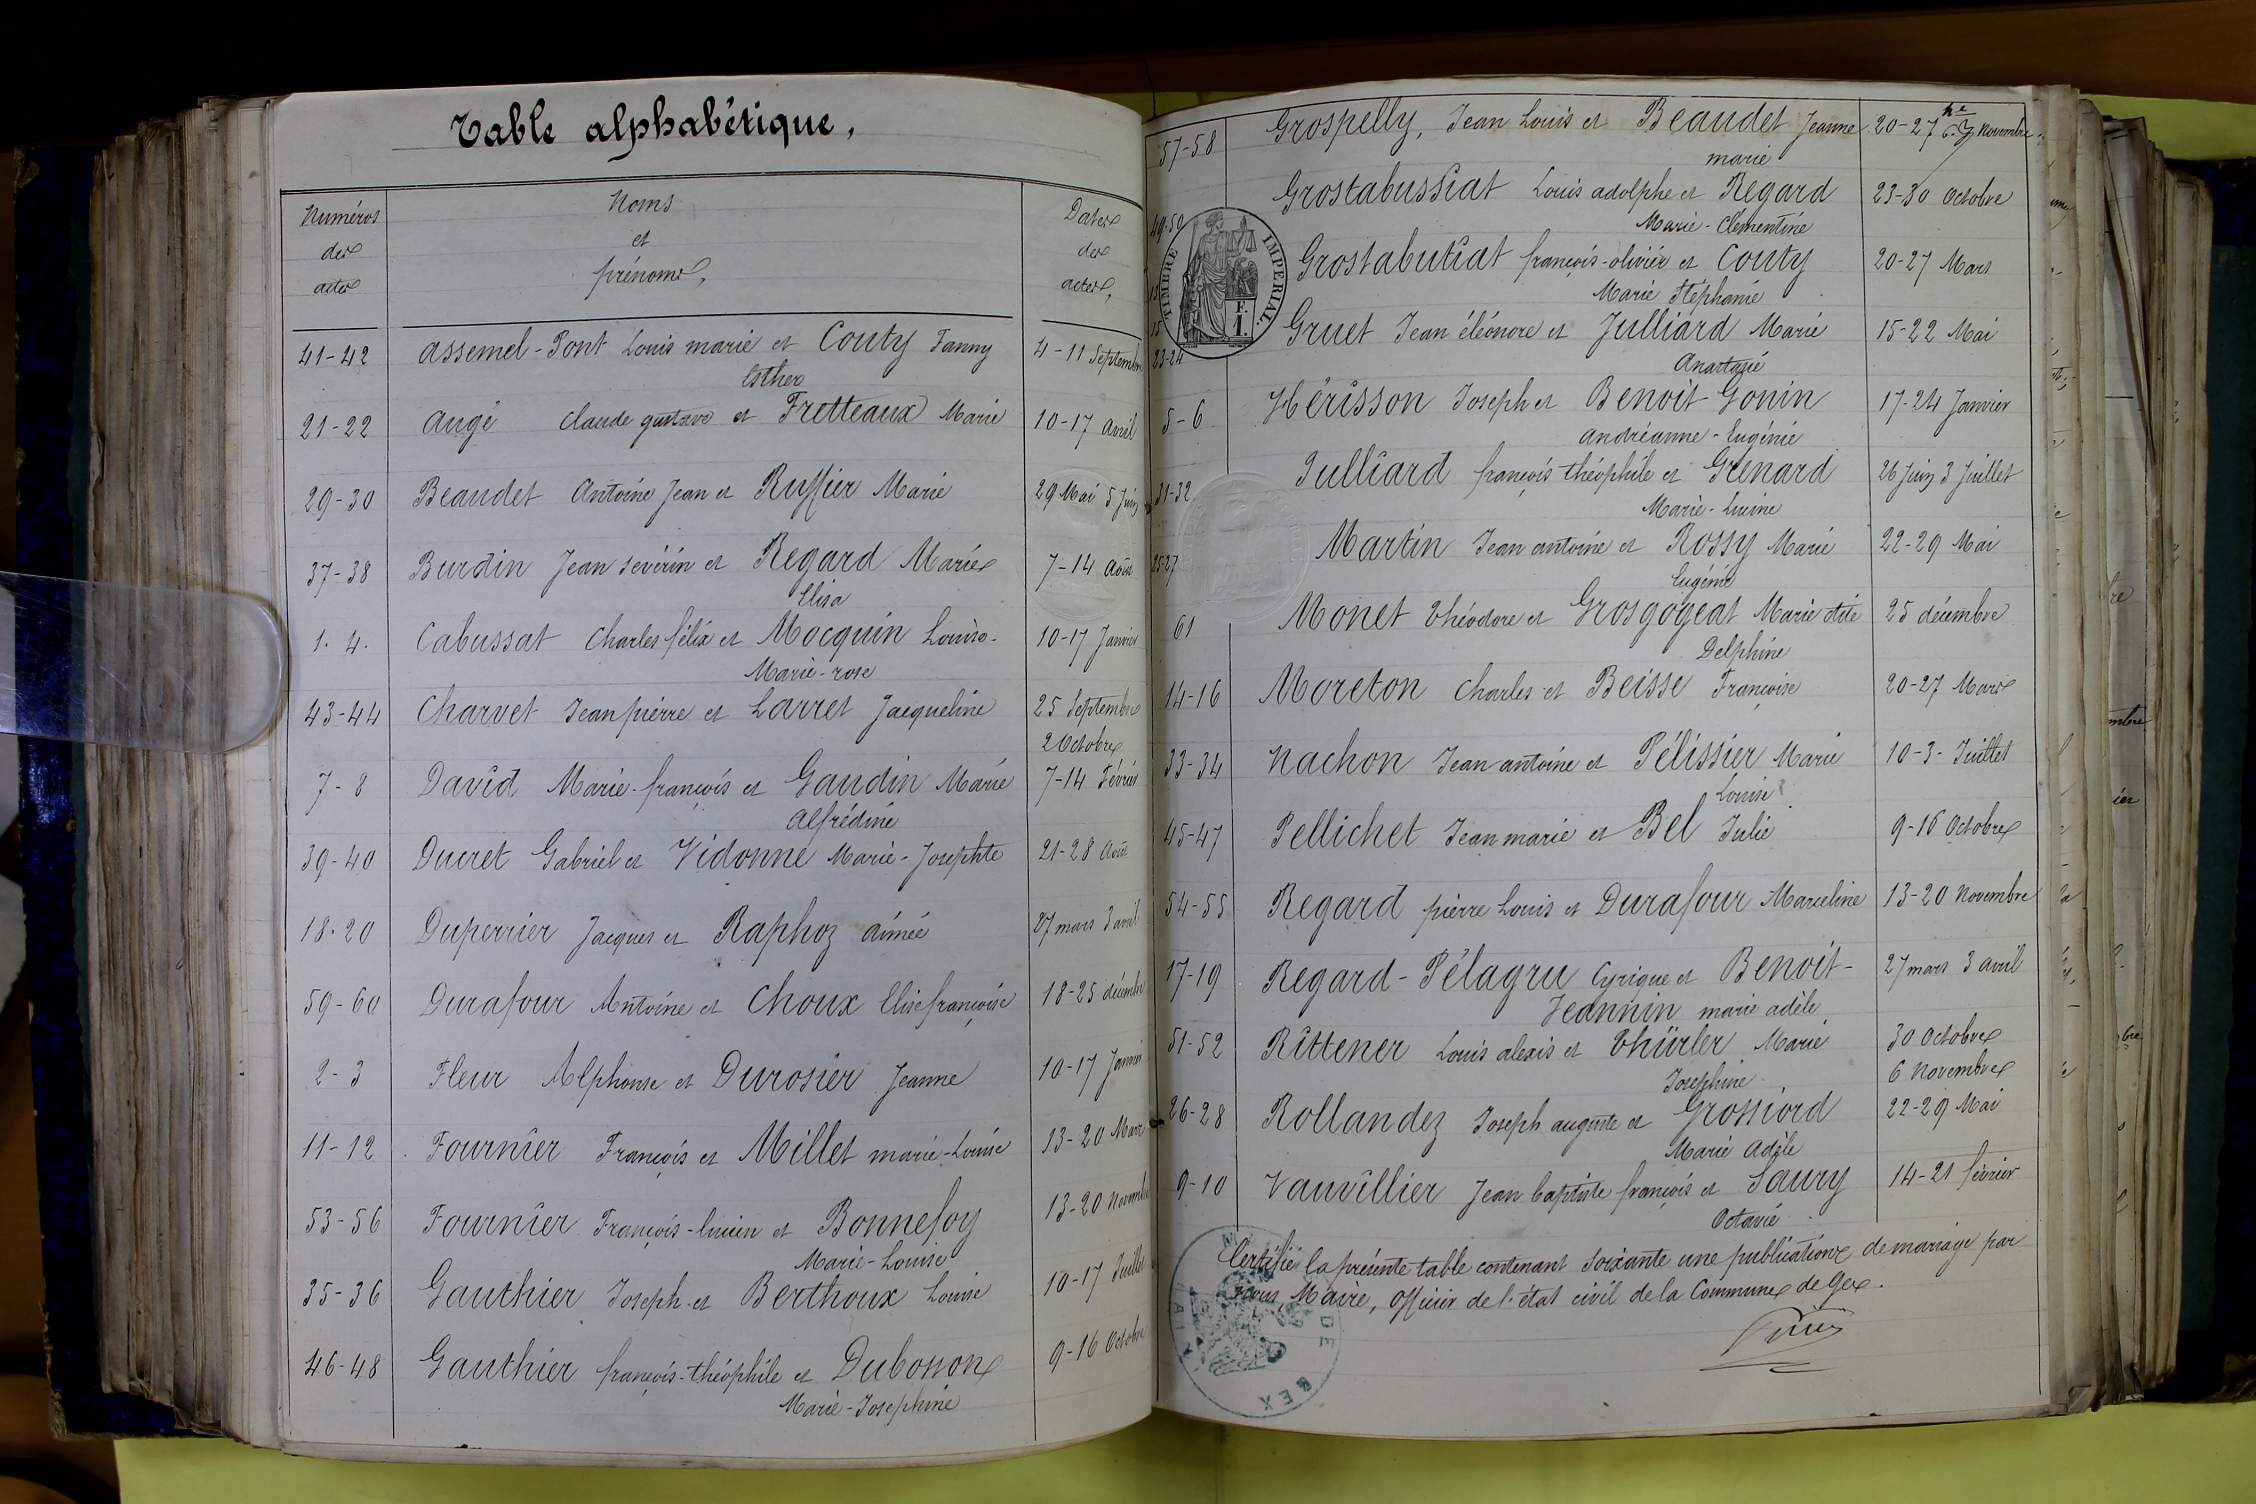 Table alphabétique,
Numéros
des
actes
Noms
et
prénoms,
Dates
des
actes,
41-42 Assemel-Pont Louis marie et Couty Fanny 4-11 Septembre
Esther
21-22 Augé Claude gustave et Fretteaux Marie 10-17 avril
29-30 Beaudet Antoine Jean et Ruffier Marie 29 Mai 5 Juin
37-38 Burdin Jean sevérin et Regard Marie 7-14 Août
Elisa
1. 4. Cabussat Charles félix et Mocquin Louise- 10-17 Janvier
Marie-rose
43-44 Charvet Jean pierre et Larret Jacqueline 25 Septembre
2 Octobre
7-8 David Marie-françois et Gaudin Marie 7-14 Février
Alfrédine
39-40 Ducret Gabriel et Vidonne Marie-Josephte 21-28 Août
18-20 Duperrier Jacques et Raphoz aimée 27 mars 3 avril
59-60 Durafour Antoine et Choux Elise françoise 18-25 décembre
2-3 Fleur Alphonse et Durosier Jeanne 10-17 Janvier
11-12 Fournier François et Millet marie-Louise 13-20 Mars
53-56 Fournier François-lucien et Bonnefoy 13-20 Novembre
Marie-Louise
35-36 Gauthier Joseph et Berthoux Louise 10-17 Juillet
46-48 Gauthier françois-théophile et Dubosson 9-16 Octobre
Marie-Josephine
57-58 Grospelly, Jean Louis et Beaudet Jeanne 20-27 Novembre
marie
49-50 Grostabussiat Louis adolphe et Regard 23-30 Octobre
Marie-Clementine
Grostabutiat françois-olivier et Couty 20-27 Mars
Marie Stéphanie
23-24 Gruet Jean éléonore et Julliard Marie 15-22 Mai
Anastasie
5-6 Hérisson Joseph et Benoit-Gonin 17-24 Janvier
andréanne-Eugénie
31-32 Julliard françois théophile et Grenard 26 Juin 3 Juillet
Marie-Lucine
25-27 Martin Jean antoine et Rossy Marie 22-29 Mai
Eugénie
61 Monet théodore et Grosgogeat Marie dite 25 décembre
Delphine
14-16 Moreton Charles et Beisse Françoise 20-27 Mars
33-34 Nachon Jean antoine et Pélissier Marie 10-3-Juillet
Louise
45-47 Pellichet Jean marie et Bel Julie 9-16 Octobre
54-55 Regard pierre Louis et Durafour Marceline 13-20 Novembre
17-19 Regard-Pélagru Cyrique et Benoit- 27 mars 3 avril
Jeannin marie adèle
51-52 Rittener Louis alexis et Thürler Marie 30 Octobre
Josephine 6 Novembre
26-28 Rollandez Joseph auguste et Grossiord 22-29 Mai
Marie Adèle
9-10 Vauvillier Jean baptiste françois et Saury 14-21 février
Octavie
Certifié la présente table contenant soixante une publications de mariage par
nous, Maire, Officier de l'état civil de la Commune de Gex.
TIMBRE IMPERIAL
F.
1.
DE GEX